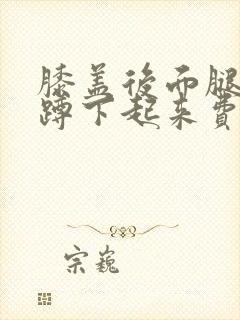 膝盖後面腿
蹲下起来費
宗巍